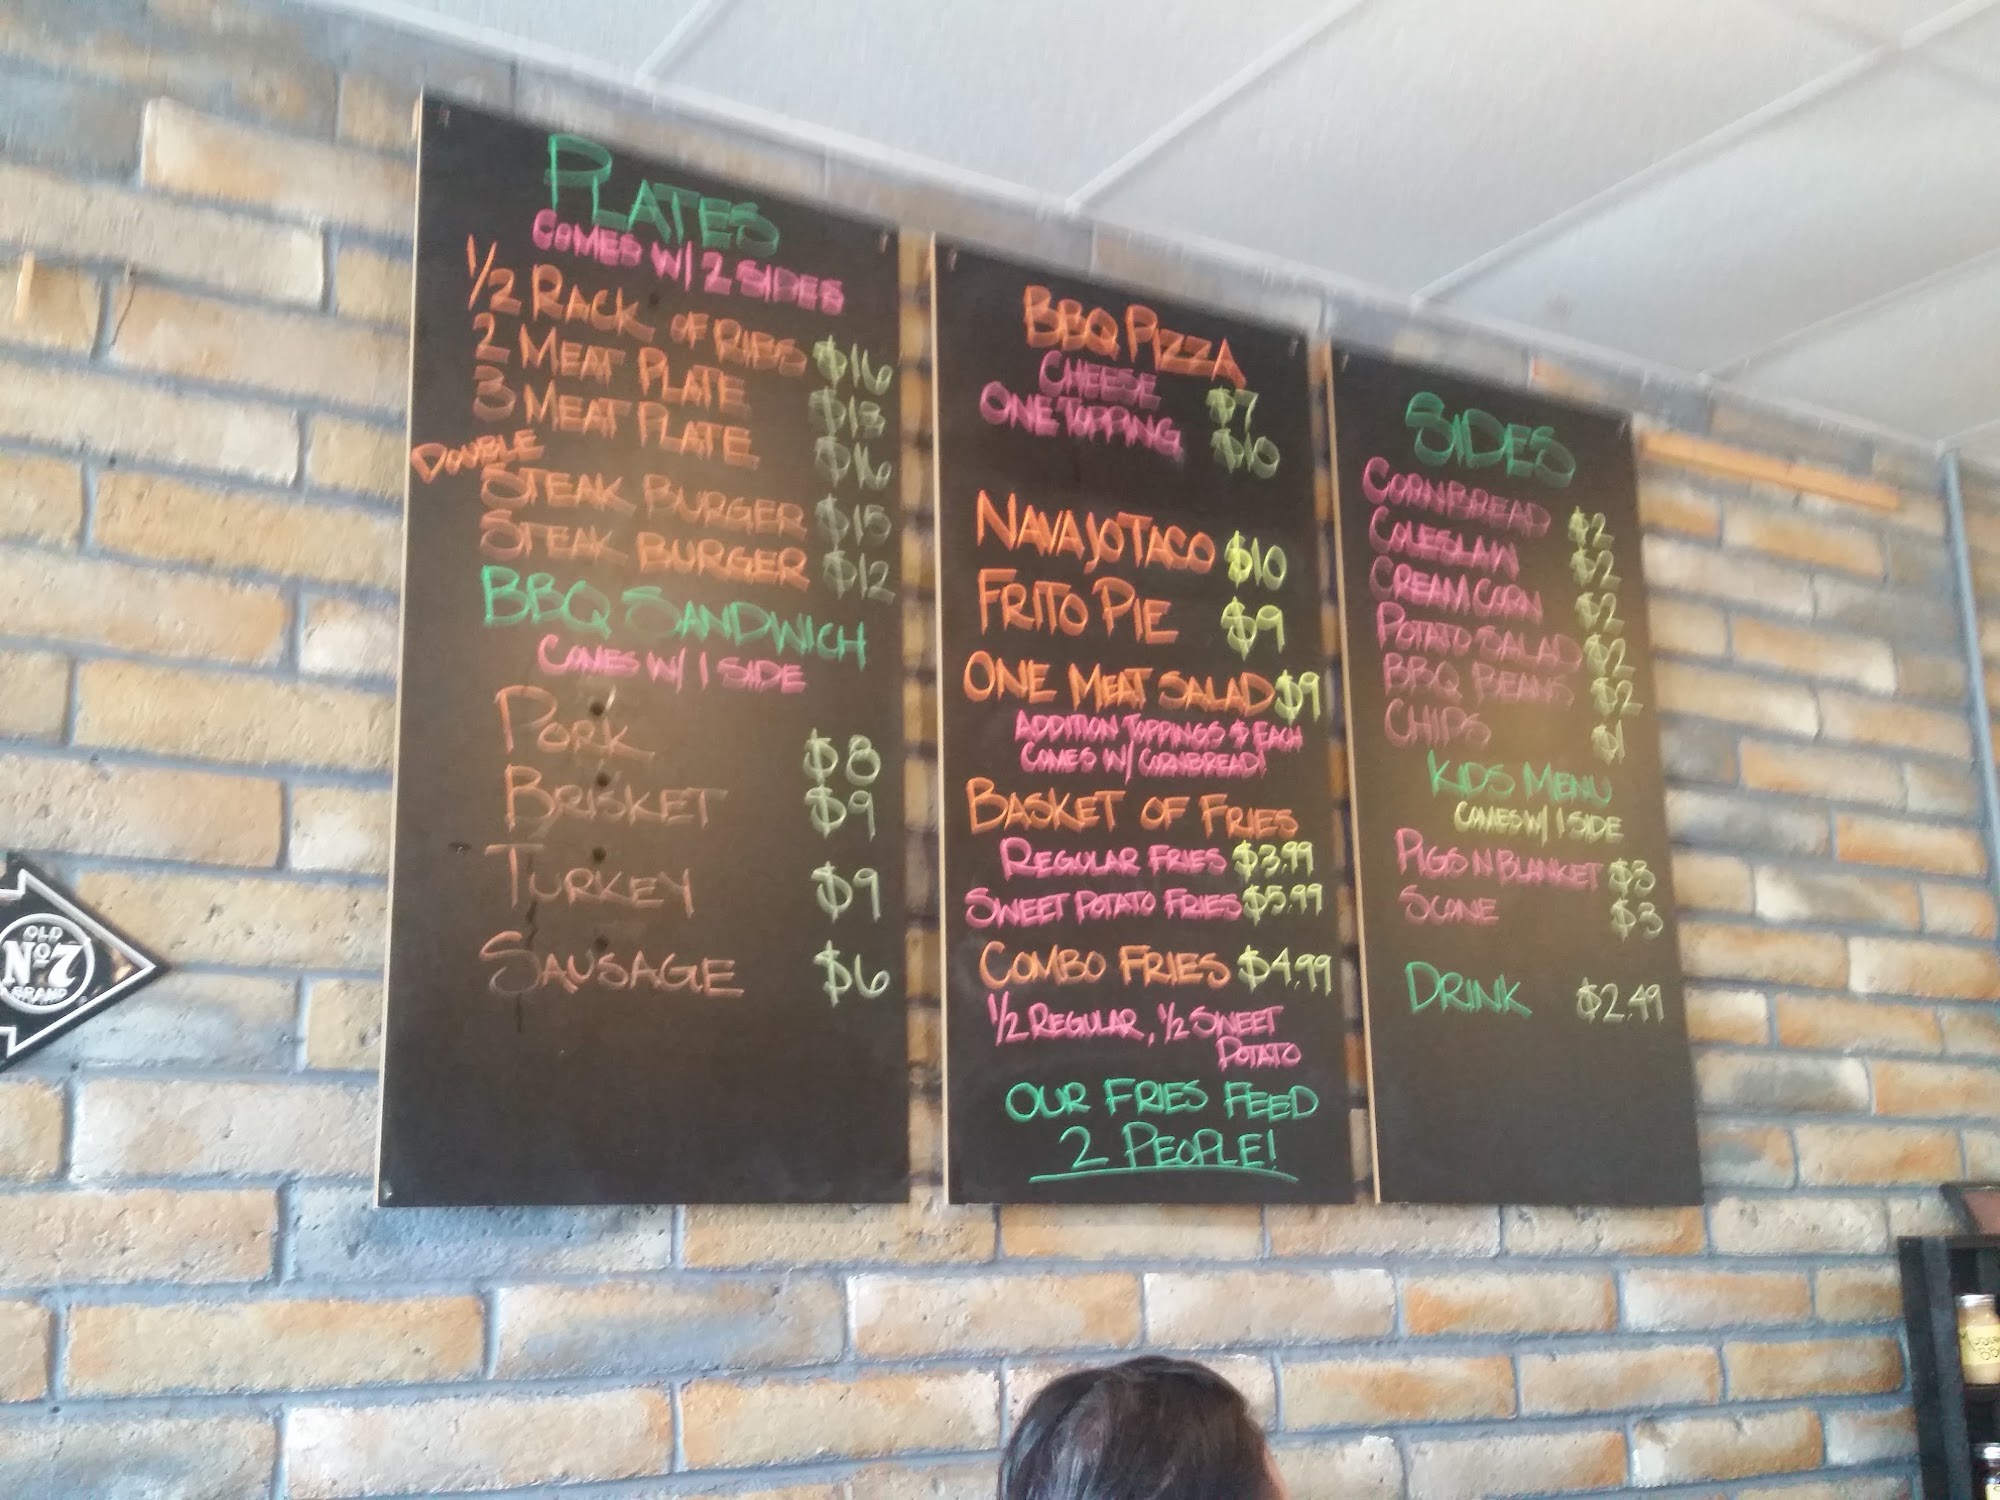 PLATES
COMES W/ 2 SIDES
1/2 RACK OF RIBS $16
2 MEAT PLATE $13
3 MEAT PLATE $16
DOUBLE
STEAK BURGER $15
STEAK BURGER $12
BBQ SANDWICH
COMES W/ 1 SIDE
PORK $8
BRISKET $9
TURKEY $9
SAUSAGE $6
BBQ PIZZA
CHEESE $7
ONE TOPPING $10
NAVAJO TACO $10
FRITO PIE $9
ONE MEAT SALAD $9
ADDITION TOPPINGS $ EACH
COMES W/ CORNBREAD!
BASKET OF FRIES
REGULAR FRIES $3.99
SWEET POTATO FRIES $5.99
COMBO FRIES $4.99
1/2 REGULAR, 1/2 SWEET
POTATO
OUR FRIES FEED
2 PEOPLE!
SIDES
CORNBREAD $2
COLESLAW $2
CREAM CORN $2
POTATO SALAD $2
BBQ BEANS $2
CHIPS $1
KIDS MENU
COMES W/ 1 SIDE
PIGS N BLANKET $3
SCONE $3
DRINK $2.49
OLD
No. 7
BRAND